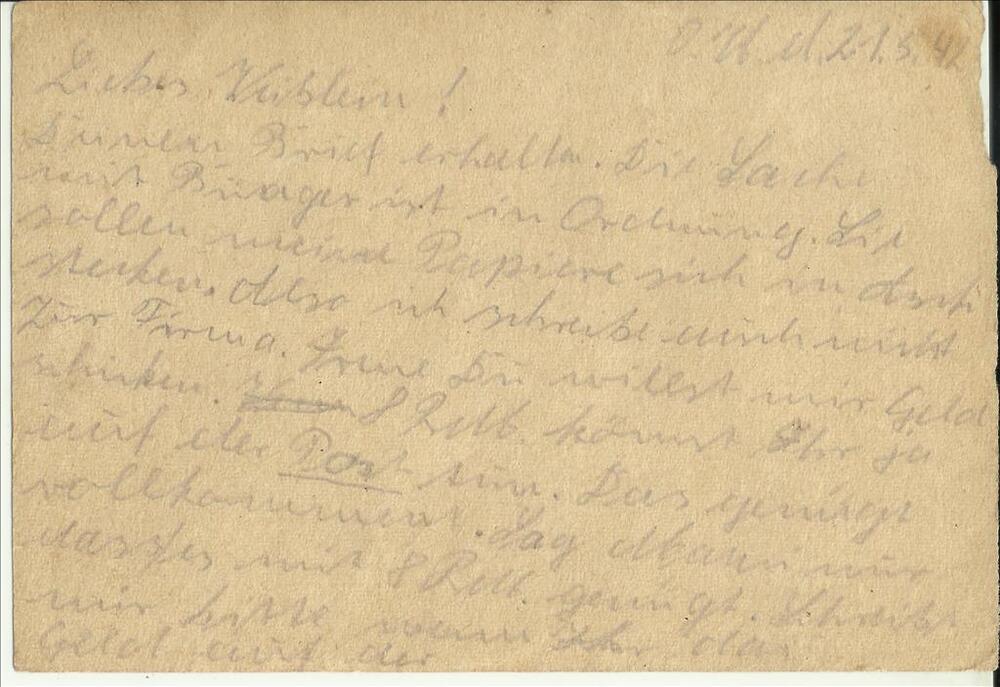 O.U. d. 21.5.42
Liebes Weiblein!
Deinen Brief erhalten. Die Sache
mit Bürger ist in Ordnung. Sie
sollen meine Papiere sich in
stecken. Also ich schreibe auch nicht
zur Firma. Irene Du willst mir Geld
schicken. 8 RM. könnt Ihr ja
auf der Post tun. Das genügt
vollkommen. Sag nur
dass es mit 8 RM. genügt. Schreibt
mir bitte wann Ihr das
Geld auf der